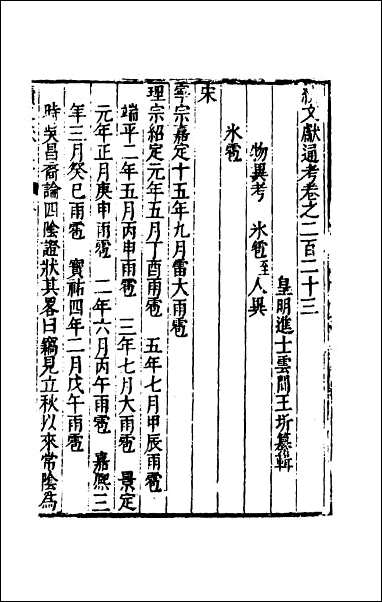 文獻通考卷之二百二十三
皇明進士雲間王圻纂輯
物異考 氷雹至人異
氷雹
宋
寧宗嘉定十五年九月雷大雨雹
理宗紹定元年五月丁酉雨雹 五年七月甲辰雨雹
端平二年五月丙申雨雹 三年七月大雨雹 景定
元年正月庚申雨雹 二年六月丙午雨雹 嘉熙三
年三月癸巳雨雹 寶祐四年二月戊午雨雹
時吳昌裔論四陰證狀其畧曰竊見立秋以來常陰爲